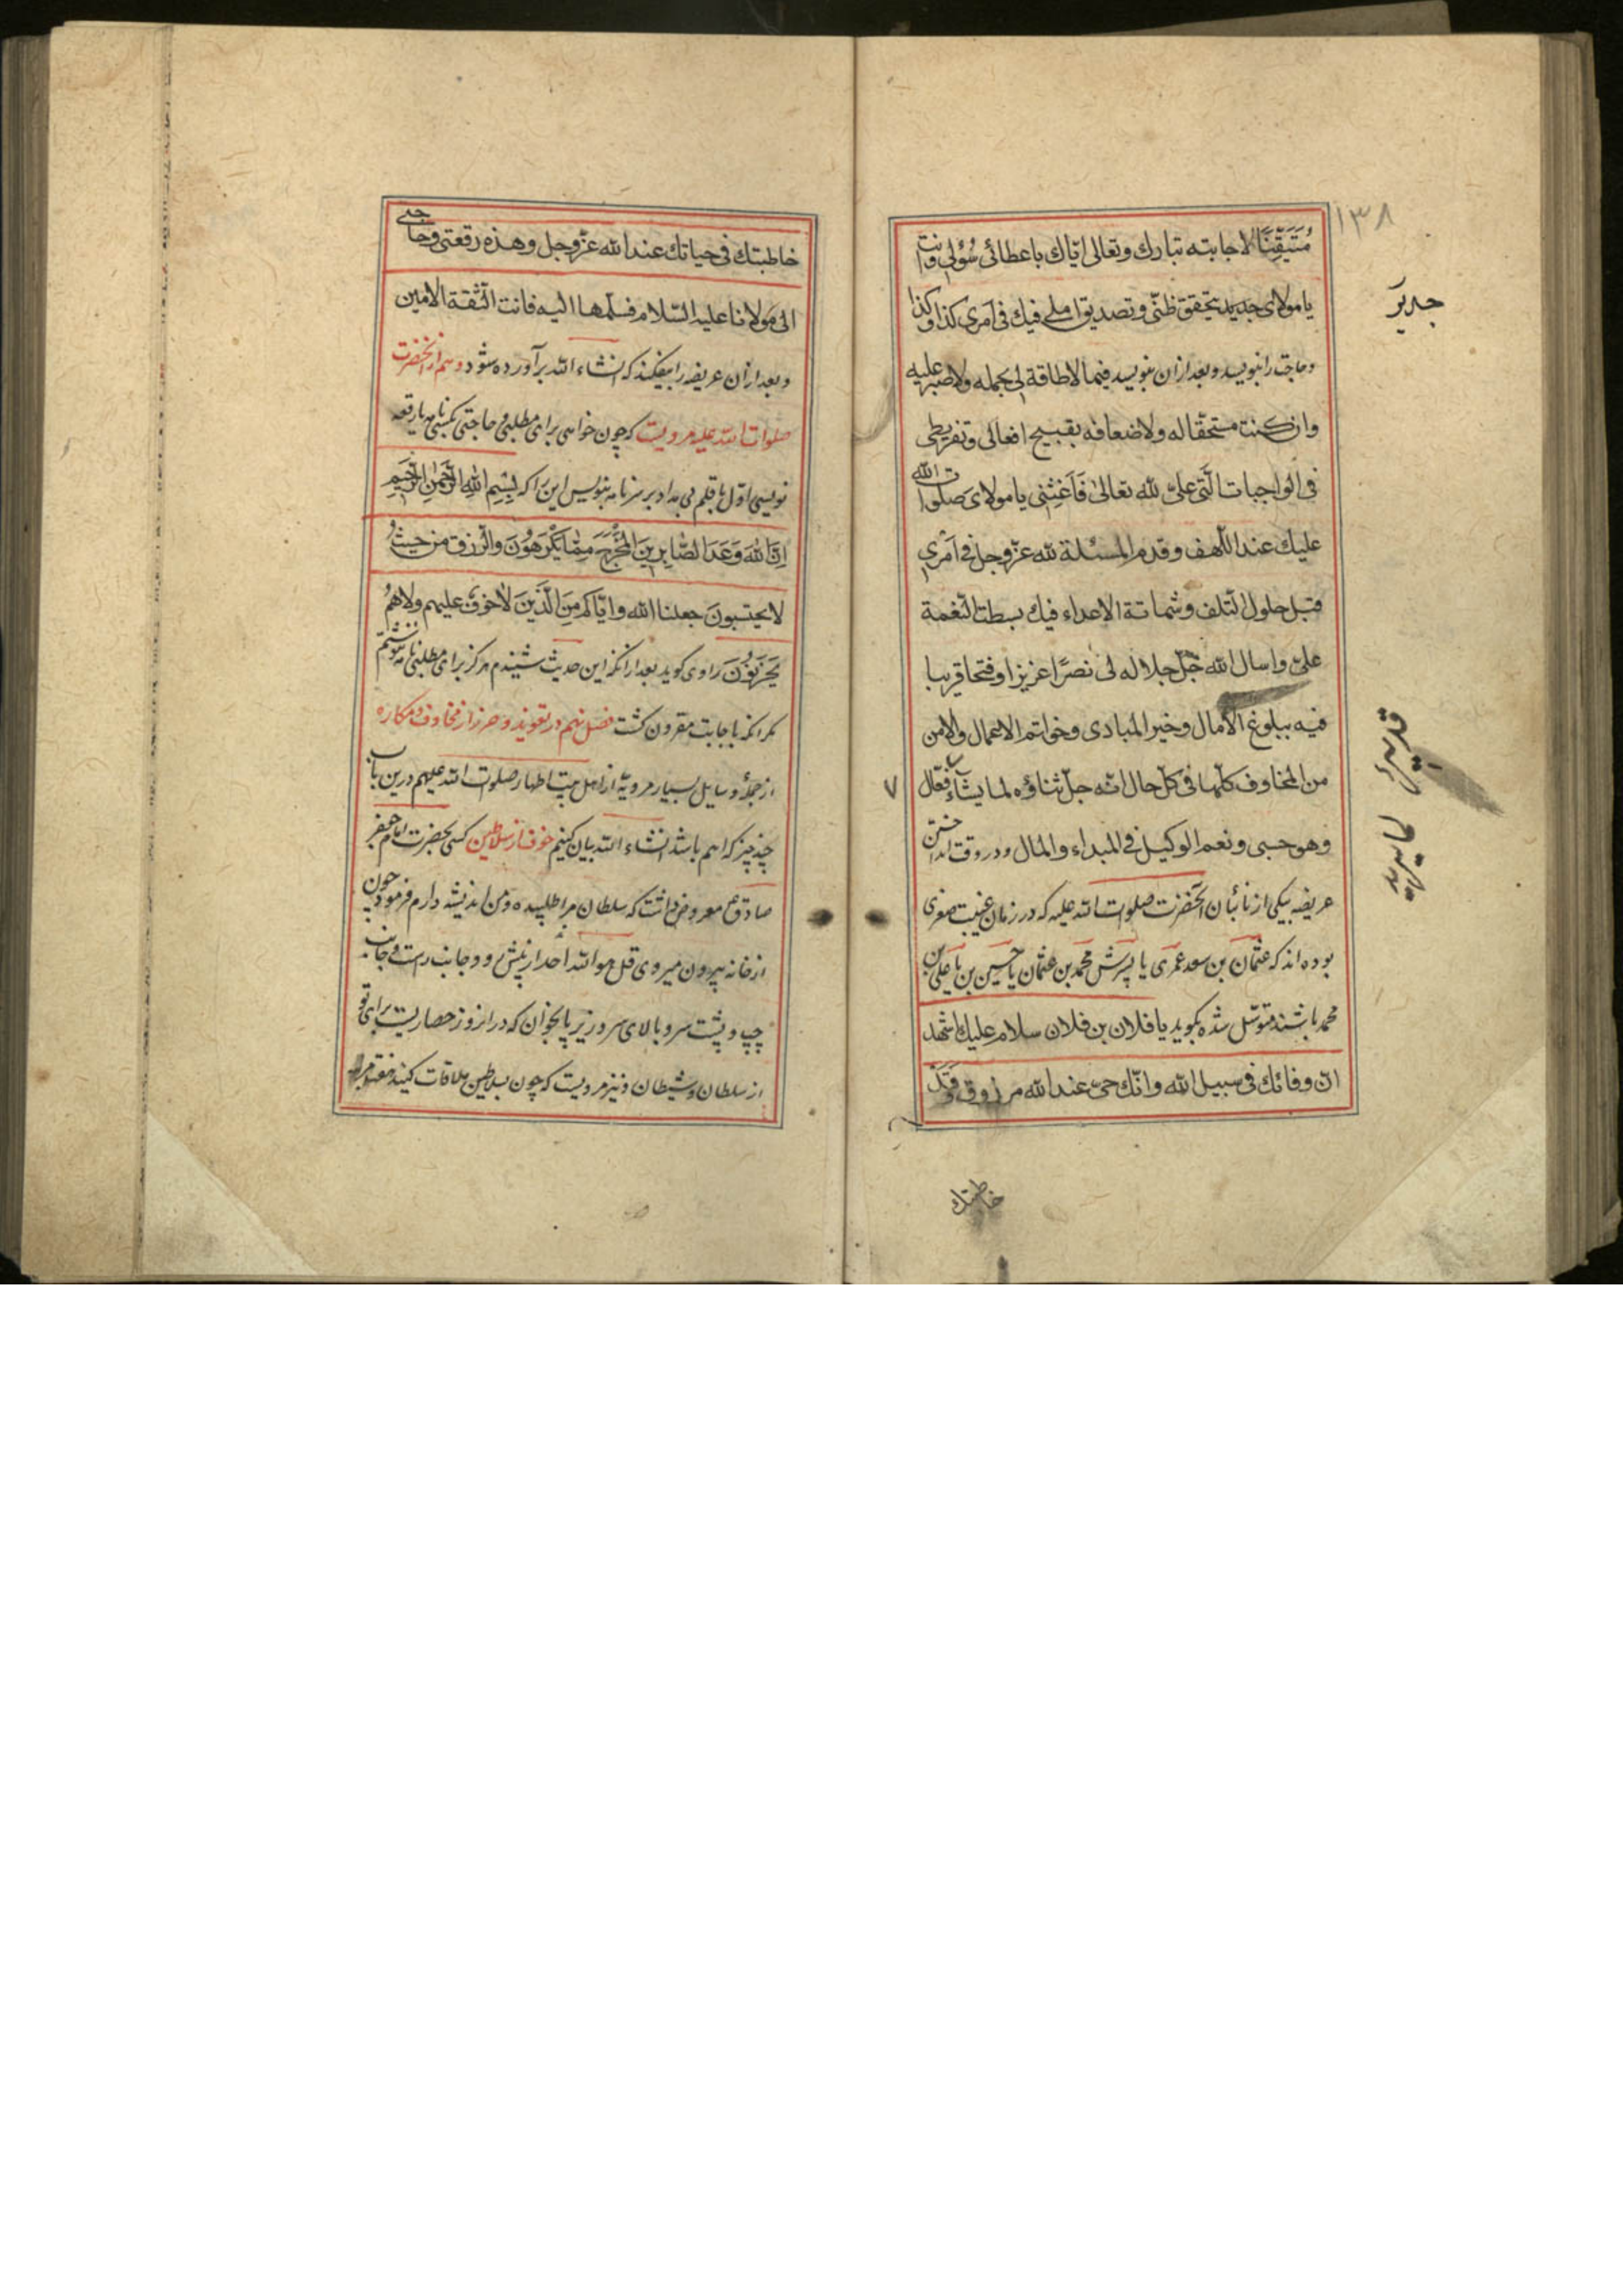 ١٣٨
مُتَيَقِّنًا لاجابته تبارك وتعالى اياك باعطائى سُؤلى وانت
يا مولاى جديد بتحقق ظنّى وتصديق املى فيك فى اَمرى كذا وكذا
جدير
وحاجت را بنويسد و بعد ازان بنويسد فيما لا طاقة لى بحمله ولا صبر عليه
وان كنت مستحقا له ولاضعافه بقبيح افعالى وتفريطى
فى الواجبات الّتى علىّ لله تعالىٰ فَاَغِثنى يا مولاىَ صلوات الله
عليك عند اللّهف وقدم المسئلة لله عزّ وجل فى اَمرى
قبل حلول التّلف وشماتة الاعداء فيك بسطت النّغمة
علىّ واسال الله جلّ جلاله لى نصرًا عزيزا وفتحا قريبا
فيه ببلوغ الآمال وخير المبادى وخواتم الاعمال والامن
من المخاوف كلّها فى كلّ حال انّه جلّ ثناؤه لما يشآء فعّال
٧
وهو حسبى ونعم الوكيل فى المبداء والمال و در وقت انداختن
عريضه بيكى از نائبان آنحضرت صلوات الله عليه كه در زمان غيبت صغرى
بوده اند كه عثمان بن سعد عمرى يا پسرش محمد بن عثمان يا حسين بن يا على بن
محمد باشند متوسّل شده بگويد يا فلان بن فلان سلام عليك اشهد
انّ وفاتك فى سبيل الله وانّك حىّ عند الله مرزوق وقد
خاطبتك
خاطبتك فى حياتك عند الله عزّ وجل وهذه رقعتى وحاجتى
الى مولانا عليه السّلام فسلّمها اليه فانت الثّقة الامين
و بعد ازان عريضه را بيفكند كه انشاء الله برآورده شود و هم از آنحضرت
صلوات الله عليه مرويست كه چون خواهى براى مطلبى و حاجتى بكسى نامه يا رقعه
نويسى اوّل با قلم بى مداد بر سر نامه بنويس اين را كه بِسْمِ اللهِ الرَّحْمٰنِ الرَّحِيمِ
اِنَّ اللهَ وَعَدَ الصَّابِرِينَ المَخْرَجَ مِمَّا يَكْرَهُونَ والرّزق من حيثُ
لا يحتسبونَ جعلنا الله واياكم مِنَ الَّذينَ لا خوفٌ عليهم ولا همُ
يَحْزَنُونَ راوى گويد بعد از آنكه اين حديث شنيدم هرگز براى مطلبى نامه ننوشتم
مگر آنكه باجابت مقرون گشت فصل نهم در تعويذ و حرز از مخاوف و مكاره
از جملهٔ وسايل بسيار مرويّه از اهل بيت اطهار صلوات الله عليهم درين باب
چند چيز كه اهم باشد انشاء الله بيان كنيم خوف از سلاطين كسى بحضرت امام جعفر
صادق ع معروض داشت كه سلطان مرا طلبيده و من انديشه دارم فرمود چون
از خانه بيرون ميروى قل هو الله احد از پيش رو و جانب راست و جانب
چپ و پشت سر و بالاى سر و زير پا بخوان كه در انروز حصاريست براى تو
از سلطان و شيطان و نيز مرويست كه چون بسلاطين ملاقات كنيد